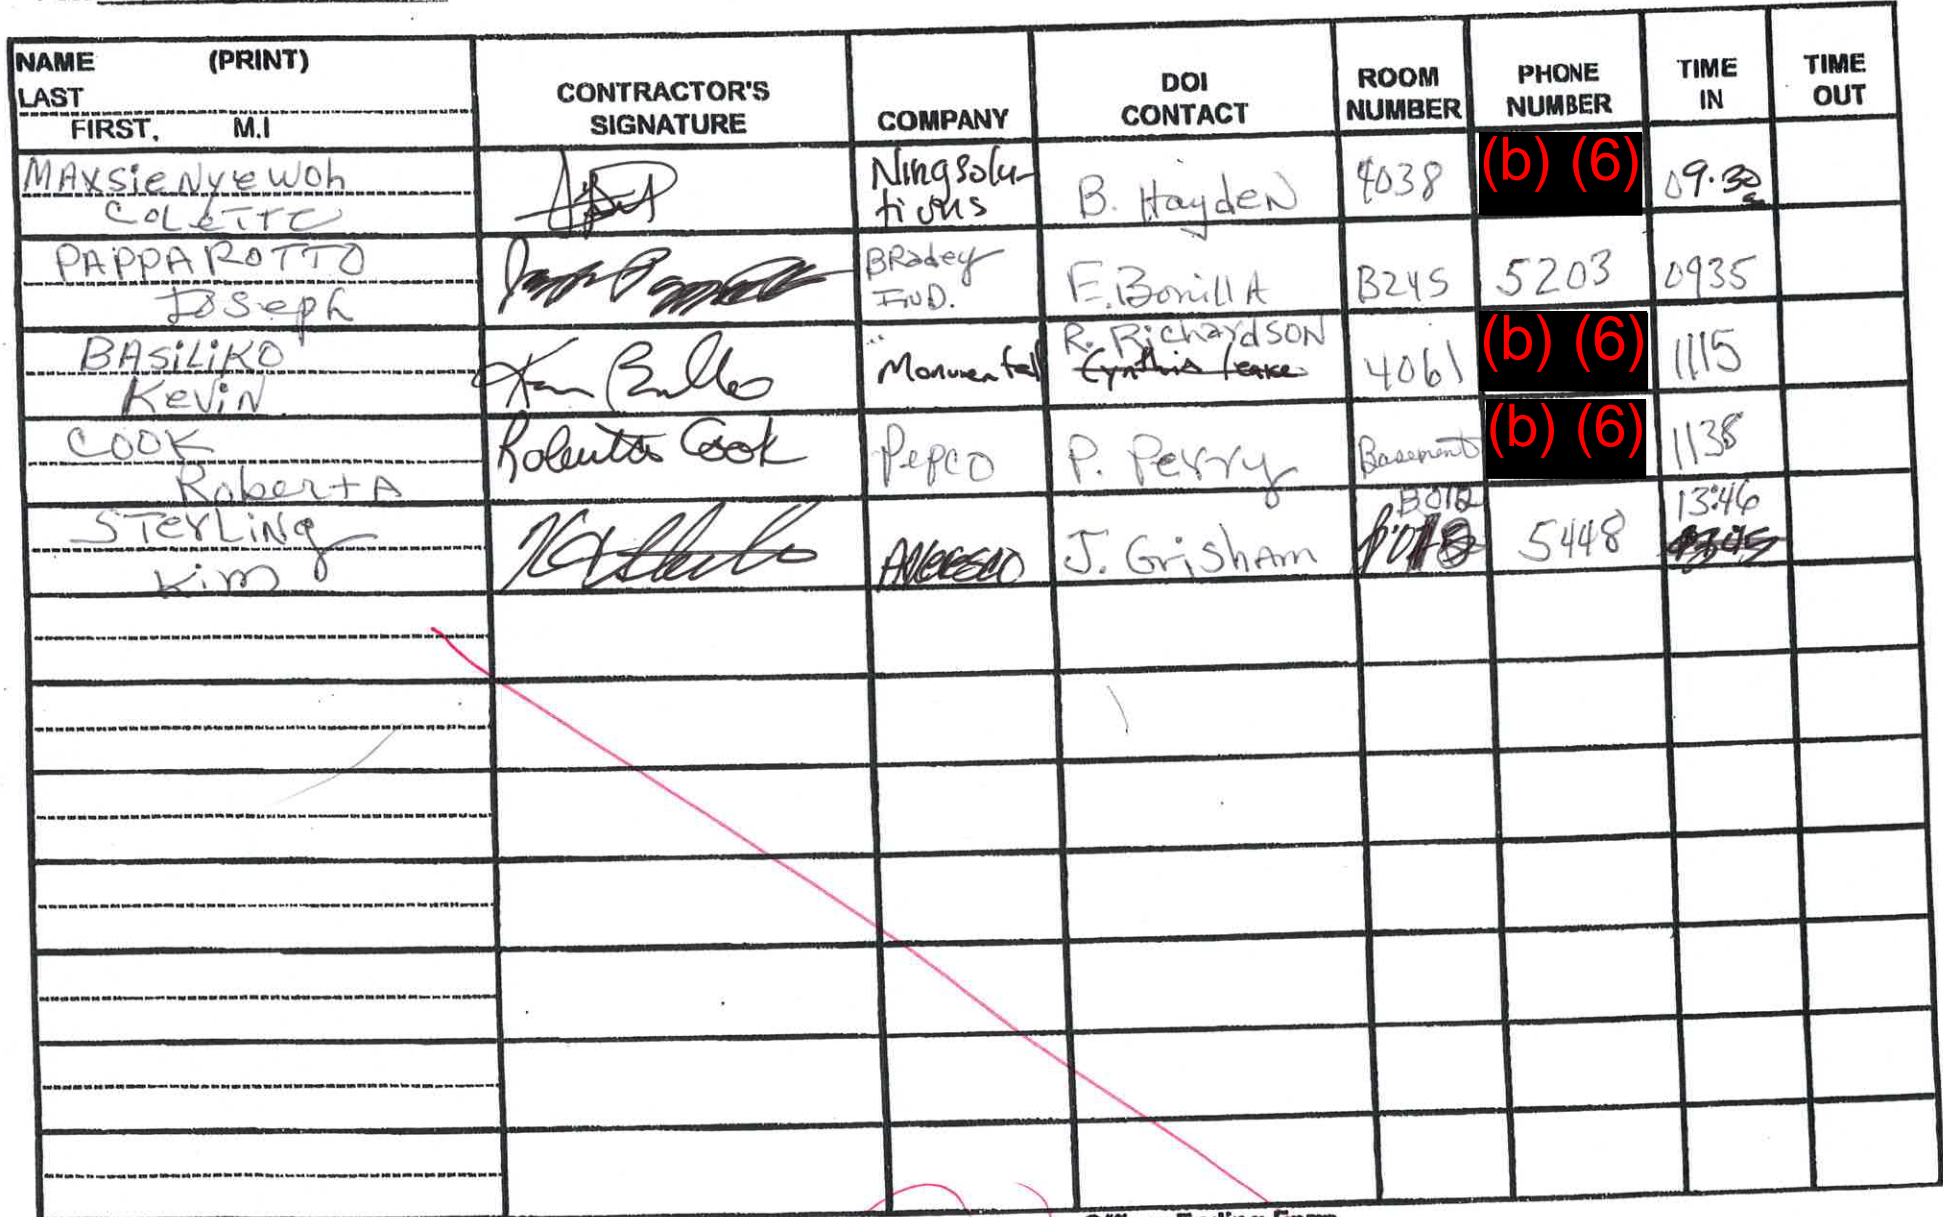 NAME (PRINT)
LAST
FIRST, M.I
CONTRACTOR'S
SIGNATURE
COMPANY
DOI
CONTACT
ROOM
NUMBER
PHONE
NUMBER
TIME
IN
TIME
OUT
MAXSieNyewoh
COLETTE
Ningsolu-
tions
B. Hayden
4038
(b) (6)
09.30
PAPPAROTTO
Joseph
BRadey
IND.
E. BonillA
B245
5203
0935
BASiLiKO
Kevin
Monumental
R. Richardson
Cynthia
4061
(b) (6)
1115
COOK
RobertA
Roberta Cook
Pepco
P. Perry
Basement
(b) (6)
1138
STerLiNg
Kim
AMERESCO
J. GriShAm
B012
5448
13:46